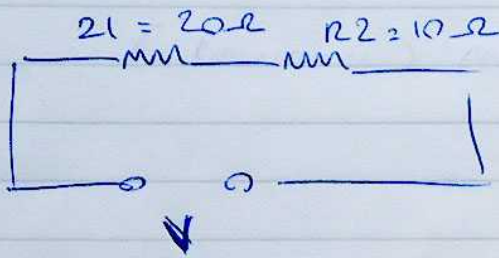 R1 = 20Ω R2 = 10Ω
V